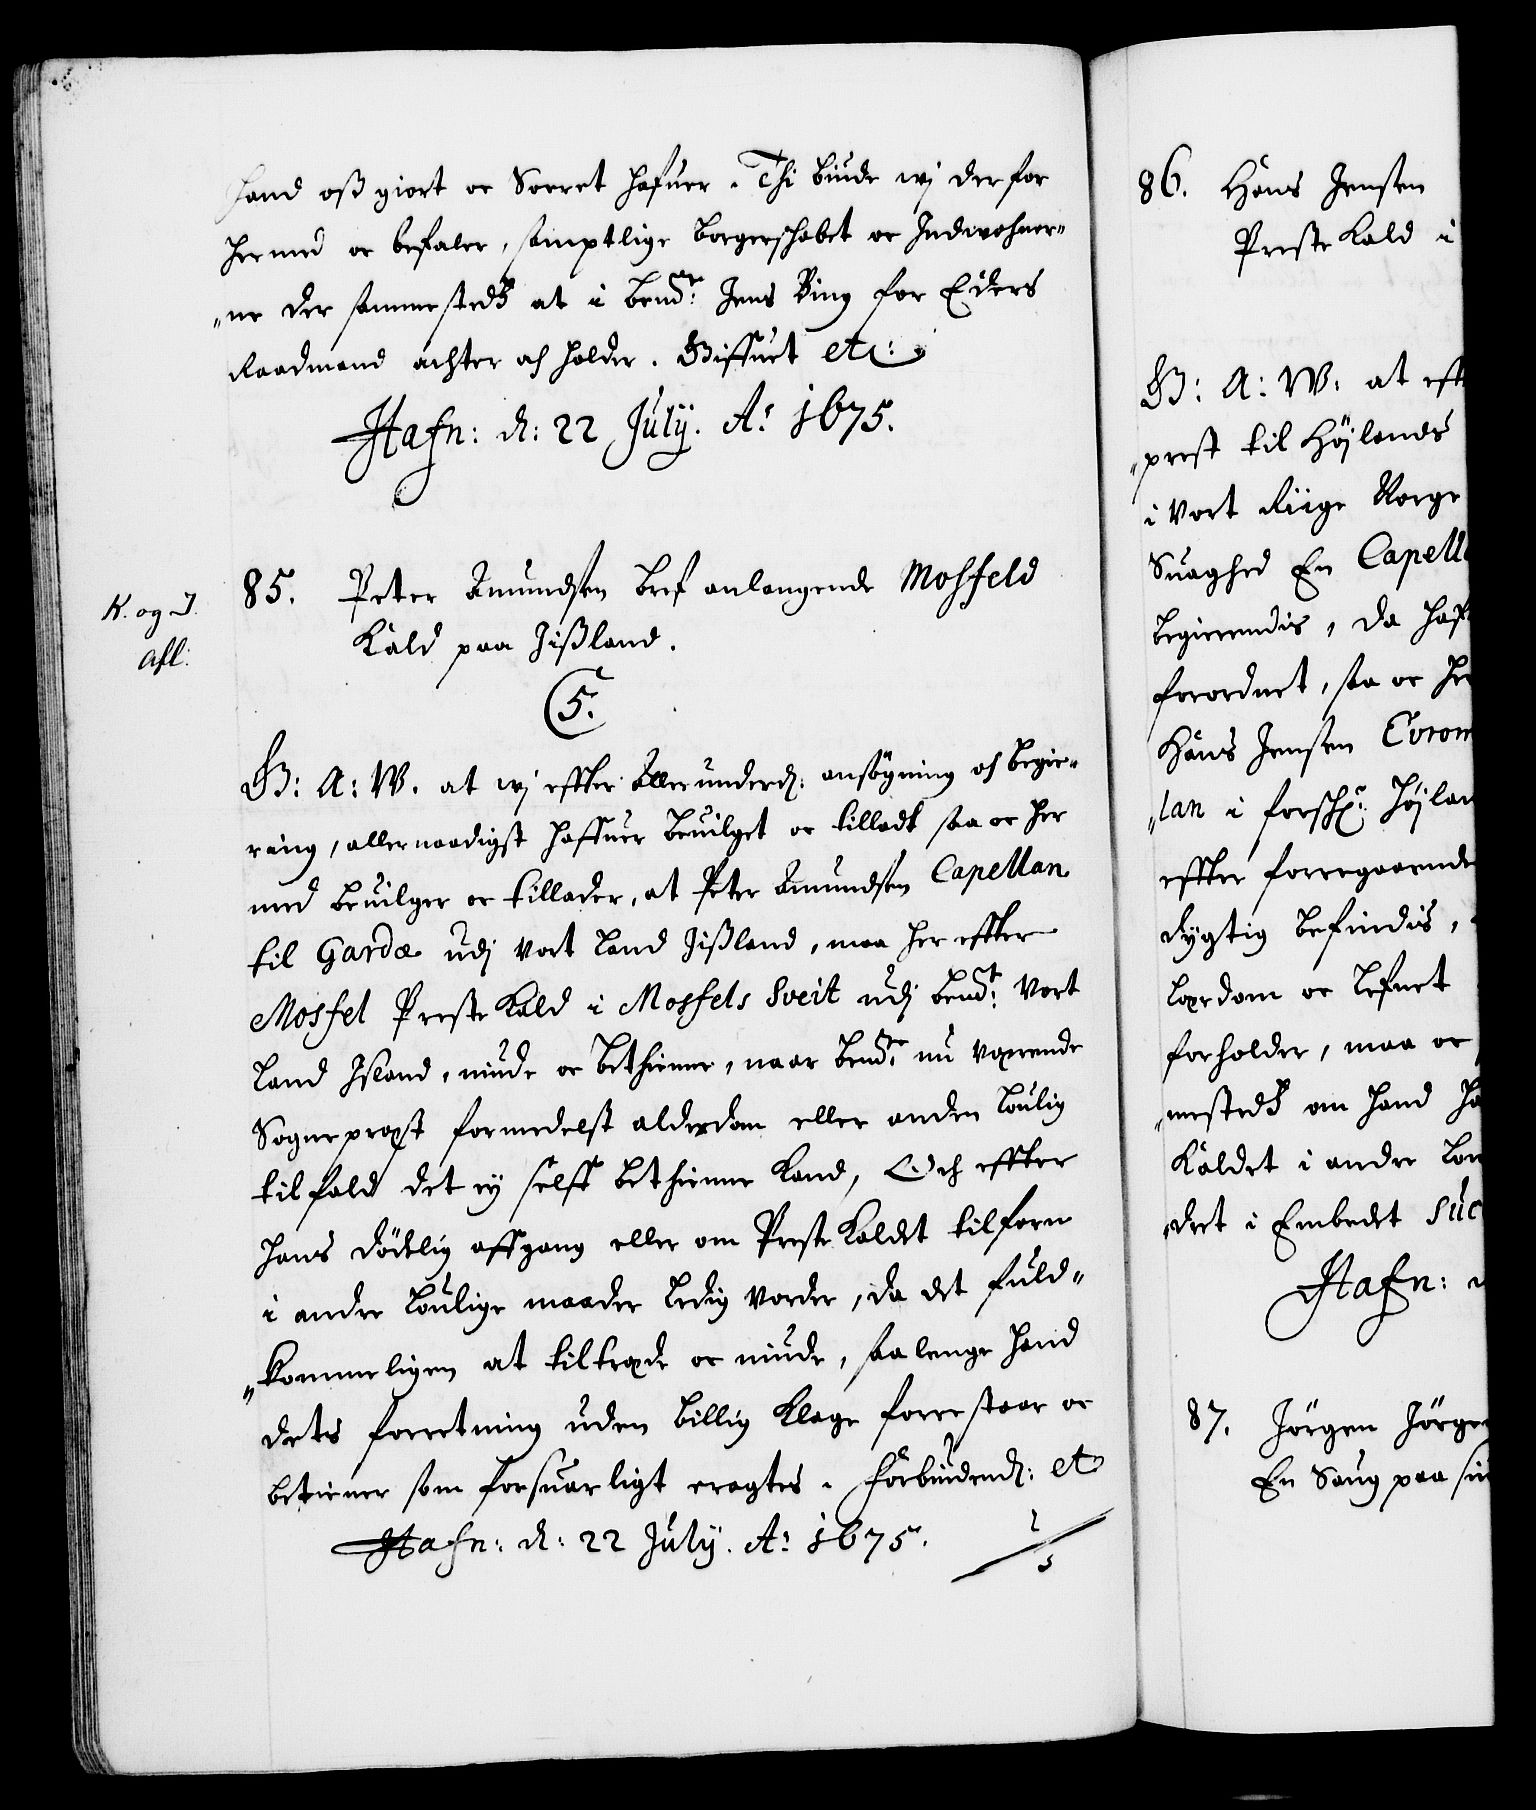 hand oß giort oc Soeret hafuer. Thi biude wj derfor
hermed oc befaler, samptlige borgerschabet oc Indwohner„
„ne der sammestedtz at i bemdte: Jens Bing for Eiders
Raadmand achter och holder. Giffuet etc:
Hafn: d: 22 July. Ao 1675.
K. og I.
Afl:
85. Peter Amundsen bref anlangende Mosfeld
Kald paa Jißland.
5.
G: A: W. at wj effter Allerunderd: ansögning och begie„
ring, allernaadigst haffuer beuilget oc tilladt saa oc her
med beuilger oc tillader, at Peter Amundsen Capellan
til Gardæ udj vort land Jißland, maa her effter
Mosfel Preste Kald i Mosfels Sveit udj bemdt: vort
land Island, niude oc bethienne, naar bemdte nu værende
Sognepræst formedelst alderdom eller anden loulig
tilfald det ej self bethienne kand, Och effter
hans dödlig affgang eller om Preste Kaldet tilforn
i andre loulige maader ledig vorder, da det fuld„
„kommeligen at tiltræde oc niude, saa lenge hand
dets forretning uden billig klage forrestaar oc
betiener som forsuarligt eragtes. Forbiudend: etc
Hafn: d: 22 July. Ao: 1675.
86. Hans Jensen
Preste Kald i
G: A: W: at eff
„prest til Höjlands
i vort Riige Norge
Suaghed En Capell
begierendis, da haf
forordnet, saa oc he
Hans Jensen Corom
„lan i forschr: Höjlan
effter foregaaende
dygtig befindis,
lærdom oc lefnet
forholder, maa oc
„mestedtz om hand ha
Kaldet i andre lou
det i Embedet suc
Hafn: d
87. Jörgen Jörge
En Saug paa sin